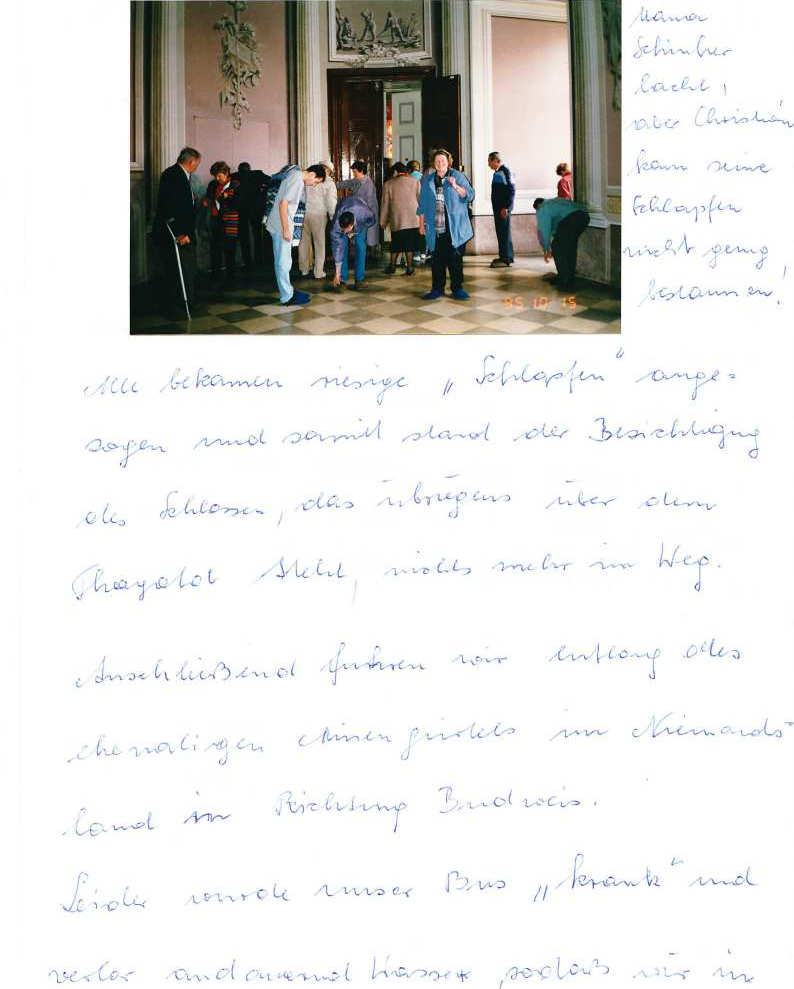 Mama
Schuber
lacht,
aber Christian
kann seine
Schlapfen
nicht genug
bestaunen!
95 10 15
Alle bekamen riesige „Schlapfen" ange=
zogen und somit stand der Besichtigung
des Schlosses, das übrigens über dem
Thayatal steht, nichts mehr im Weg.
Anschließend fuhren wir entlang des
ehemaligen Minengürtels im Niemands=
land in Richtung Budweis.
Leider wurde unser Bus „krank" und
verlor andauernd Wasser, sodaß wir in